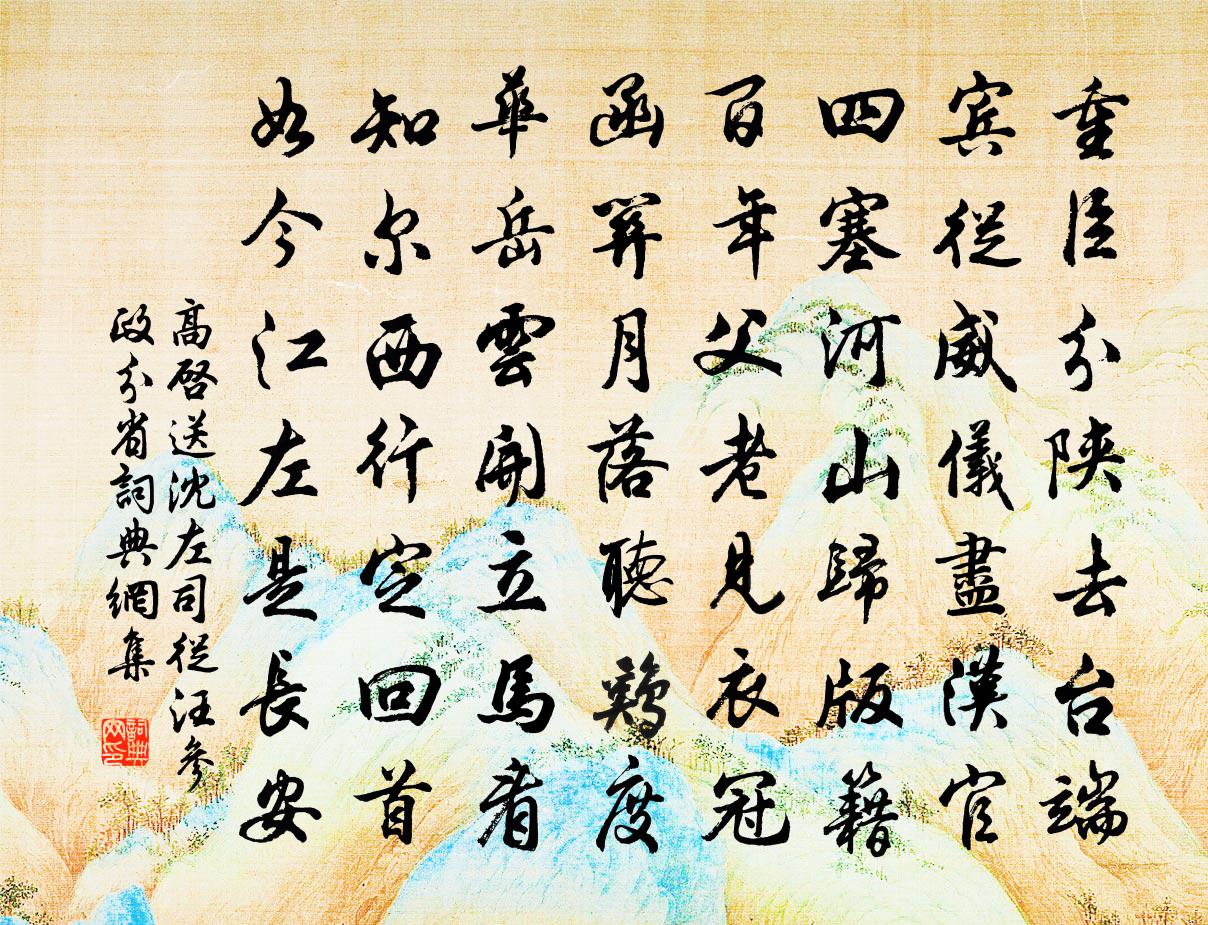 重臣分陝去台端
賓從威儀盡漢官
四塞河山歸版籍
百年父老見衣冠
函關月落聽鷄度
華岳雲開立馬看
知尔西行定回首
如今江左是長安
高啓送沈左司從汪參
政分省詞典網集
詞典網印